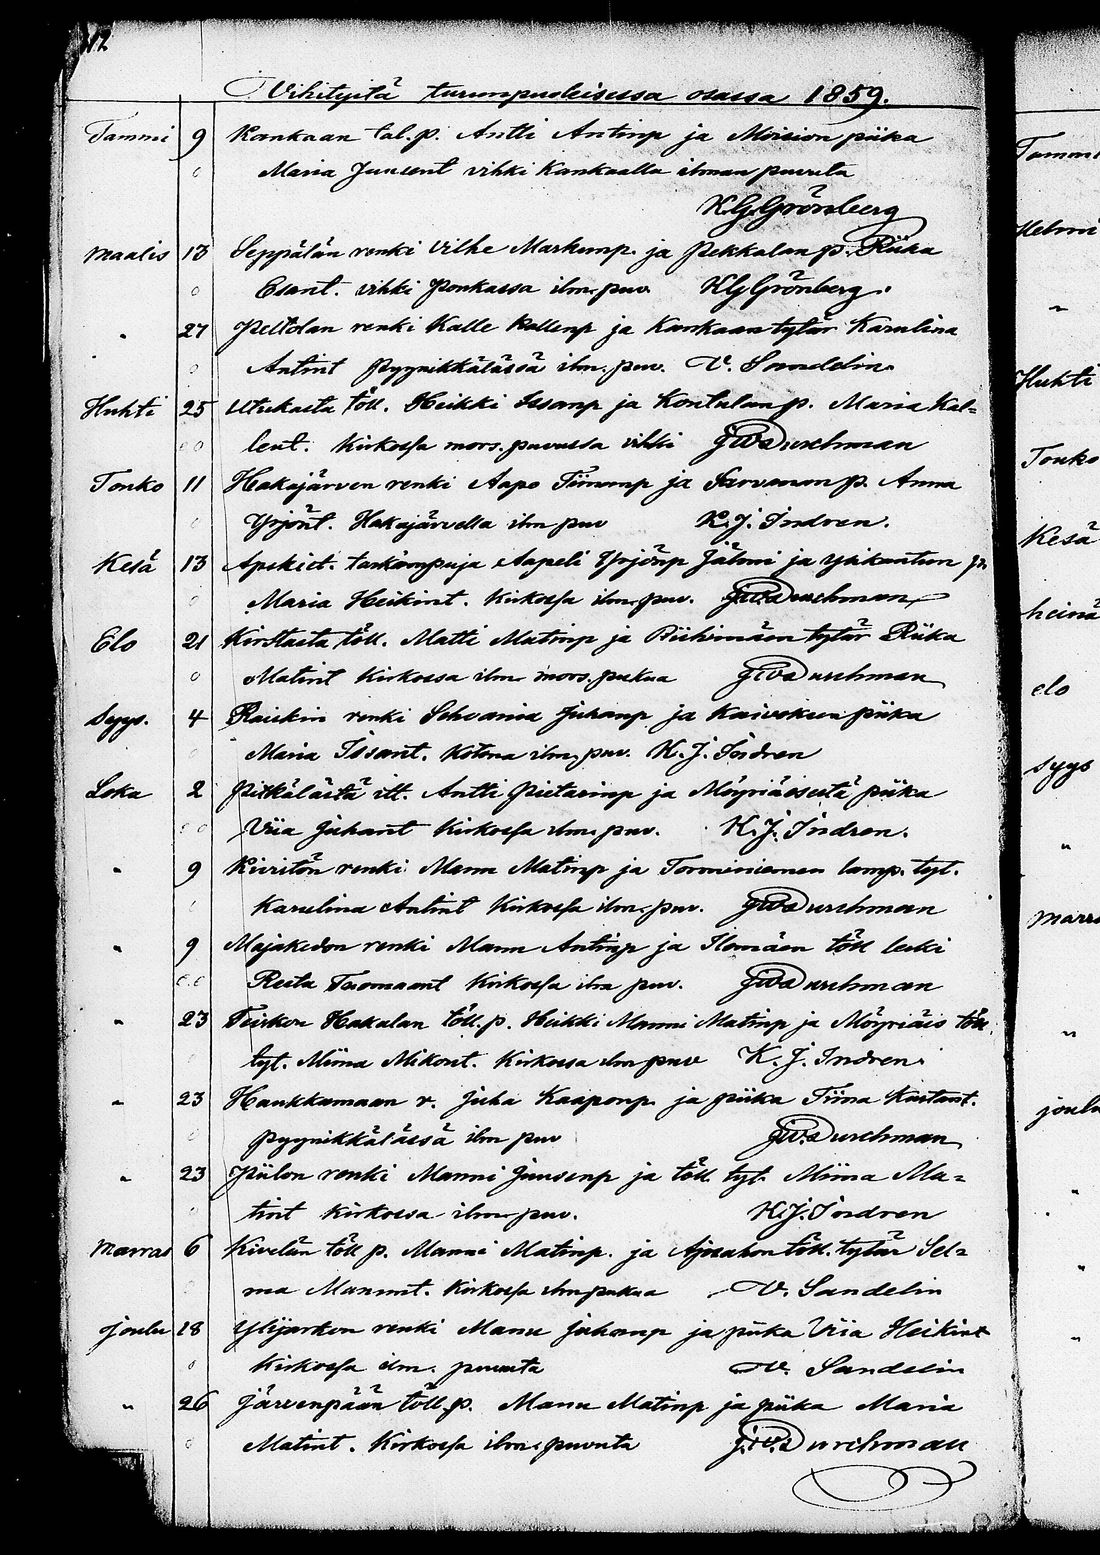 12
Vihityitä turunpuoleisessa osassa 1859.
Tammi 9 Kankaan tal.p. Antti Antinp ja Moision piika
Maria Juusent vihki Kankaalla ilman puvuta
K.G. Grönberg
Maalis 13 Seppälän renki Vilhe Markunp. ja Pekkalan p. Riika
Esant. vihki Ponkassa ilm. puv. KG Grönberg.
" 27 Peltolan renki Kalle Kallenp ja Kankaan tytär Karulina
Antint Pyynikkälässä ilm. puv. V. Sandelin.
Huhti 25 töll. Heikki Issanp ja Kontulan p. Maria Kal=
lent. Kirkossa mors. puvussa vihki Durchman
Touko 11 Hakajärven renki Aapo ja p. Anna
Yrjönt. Hakajärvellä ilm puv K. J. Indren.
Kesä 13 Aapeli Yrjönp ja
Maria Heikint. Kirkossa ilm. puv. Durchman
Elo 21 töll. Matti Matinp ja Riihimäen tytär Riika
Matint Kirkossa ilm mors. pukua Durchman
Syys. 4 Raiskin renki Juhanp ja piika
Maria Issant. Kotona ilm. puv. K. J. Indren
Loka 2 Pitkälästä itt. Antti Pietarinp ja piika
Viia Juhant Kirkossa ilm. puv. K. J. Indren.
" 9 renki Manu Matinp ja Torminiemen lamp. tyt.
Karulina Antint Kirkossa ilm. puv. Durchman
" 9 renki Manu Antinp ja töll leski
Reeta Tuomaant Kirkossa ilm puv. Durchman
" 23 Hakalan töll. p. Heikki Manni Matinp ja töll
tyt. Miina Mikont. Kirkossa ilm puv K. J. Indren.
" 23 Haukkamaan r. Juha Kaaponp. ja piika Tiina
Pyynikkälässä ilm puv Durchman
" 23 renki Manni Juusenp ja töll. tyt. Miina Ma=
tint Kirkossa ilm. puv. K. J. Indren
Marras 6 Kivelän töll p. Manni Matinp. ja töll. tytär Sel=
ma Mannint. Kirkossa ilm pukua V. Sandelin
Joulu 18 renki Manu Juhanp ja piika Viia Heikint
Kirkossa ilm. puvuta V. Sandelin
" 26 Järvenpään töll. p. Manu Matinp ja piika Maria
Matint. Kirkossa ilm. puvuta Durchman
Tammi
Helmi
"
Huhti
Touko
Kesä
heinä
elo
syys
"
marras
"
joulu
"
"
"